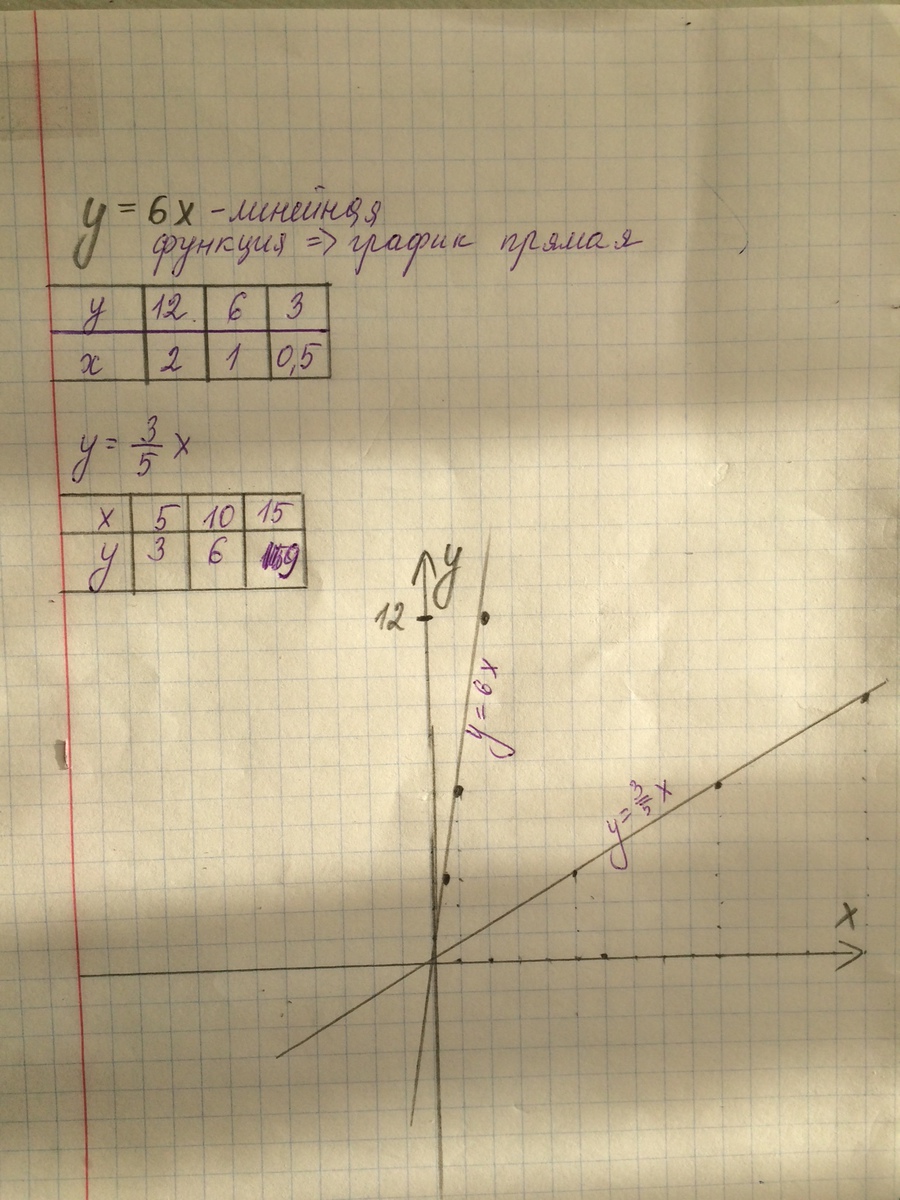 y = 6x - линейная
функция => график прямая
y 12 6 3
x 2 1 0,5
y = 3/5 x
x 5 10 15
y 3 6 9
y
12
y = 6x
y = 3/5 x
x